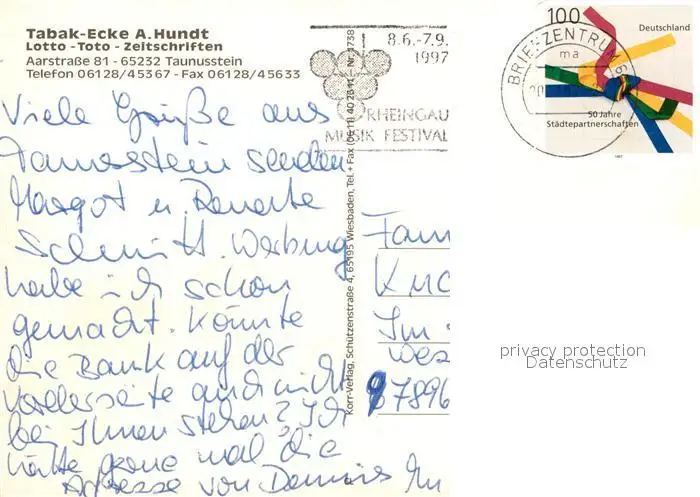 Tabak-Ecke A. Hundt
Lotto - Toto - Zeitschriften
Aarstraße 81 - 65232 Taunusstein
Telefon 06128/45367 - Fax 06128/45633
Viele Grüße aus
Taunusstein senden
Margot u. Renate
Schmitt. Werbung
habe ich schon
gemacht. Könnte
die Bank auf der
Vorderseite auch nicht
bei Ihnen stehen? Ich
hätte gerne mal die
Adresse von Dennis
8.6.-7.9.
1997
RHEINGAU
MUSIK FESTIVAL
Korr-Verlag, Schützenstraße 4, 65195 Wiesbaden, Tel. + Fax (0611) 40 26 11 Nr. 1738
BRIEFZENTRUM 6
ma
100
Deutschland
50 Jahre
Städtepartnerschaften
1997
Fam
Im
7896
privacy protection
Datenschutz